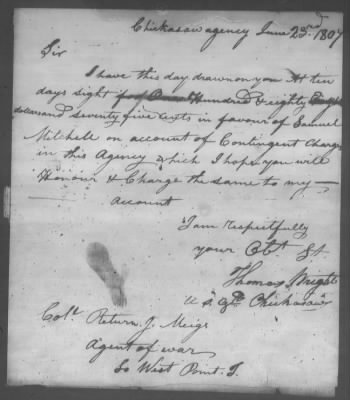 Chickasaw agency June 23rd 1807
Sir
I have this day drawn on you At ten
days sight for One Hundred & eighty Eight
dollars and seventy five cents in favour of Samuel
Mitchell on account of Contingent Charges
in this Agency which I hope you will
Honour & Charge the same to my
account
I am respectfully
your Obt St
Thomas Wright
U S Chickasaws
Colo Return J. Meigs
Agent of war
So West Point. T.